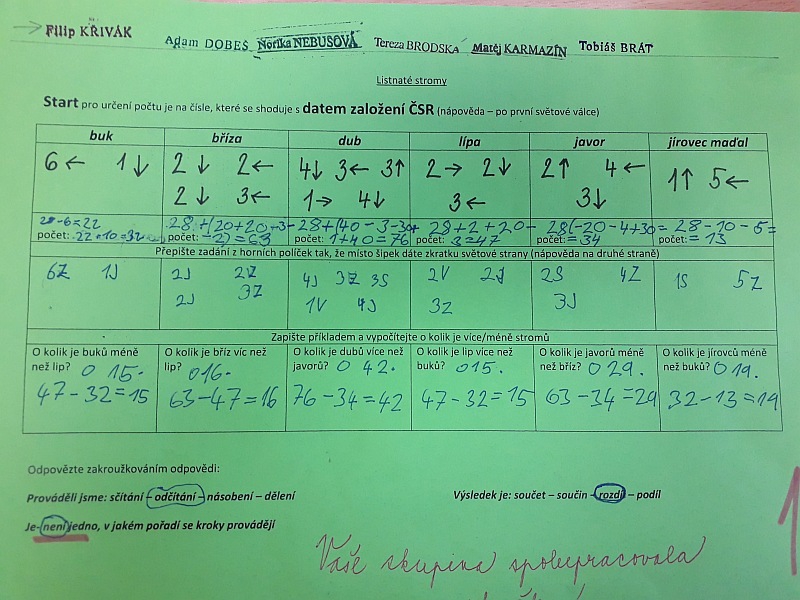 Filip KŘIVÁK Adam DOBEŠ Norika NEBUSOVÁ Tereza BRODSKÁ Matěj KARMAZÍN Tobiáš BRÁT
Listnaté stromy
Start pro určení počtu je na čísle, které se shoduje s datem založení ČSR (nápověda – po první světové válce)
buk bříza dub lípa javor jírovec maďal
6 ← 1 ↓ 2 ↓ 2 ← 4↓ 3← 3↑ 2 → 2↓ 2↑ 4 ← 1↑ 5←
2 ↓ 3← 1→ 4↓ 3← 3↓
28-6=22 28+(20+20+3- 28+(40-3-30+ 28+2+20- 28(-20-4+30= 28-10-5=
počet: 22+10=32 počet: -2)=63 počet: 1+40=76 počet: 3=47 počet: =34 počet: =13
Přepište zadání z horních políček tak, že místo šipek dáte zkratku světové strany (nápověda na druhé straně)
6Z 1J 2J 2Z 4J 3Z 3S 2V 2J 2S 4Z 1S 5Z
2J 3Z 1V 4J 3Z 3J
Zapište příkladem a vypočítejte o kolik je více/méně stromů
O kolik je buků méně O kolik je bříz víc než O kolik je dubů více než O kolik je lip více než O kolik je javorů méně O kolik je jírovců méně
než lip? O 15. lip? O16. javorů? O 42. buků? O15. než bříz? O 29. než buků? O 19.
47-32=15 63-47=16 76-34=42 47-32=15 63-34=29 32-13=19
Odpovězte zakroužkováním odpovědi:
Prováděli jsme: sčítání – odčítání – násobení – dělení Výsledek je: součet – součin – rozdíl – podíl
Je- není jedno, v jakém pořadí se kroky provádějí
Vaše skupina spolupracovala